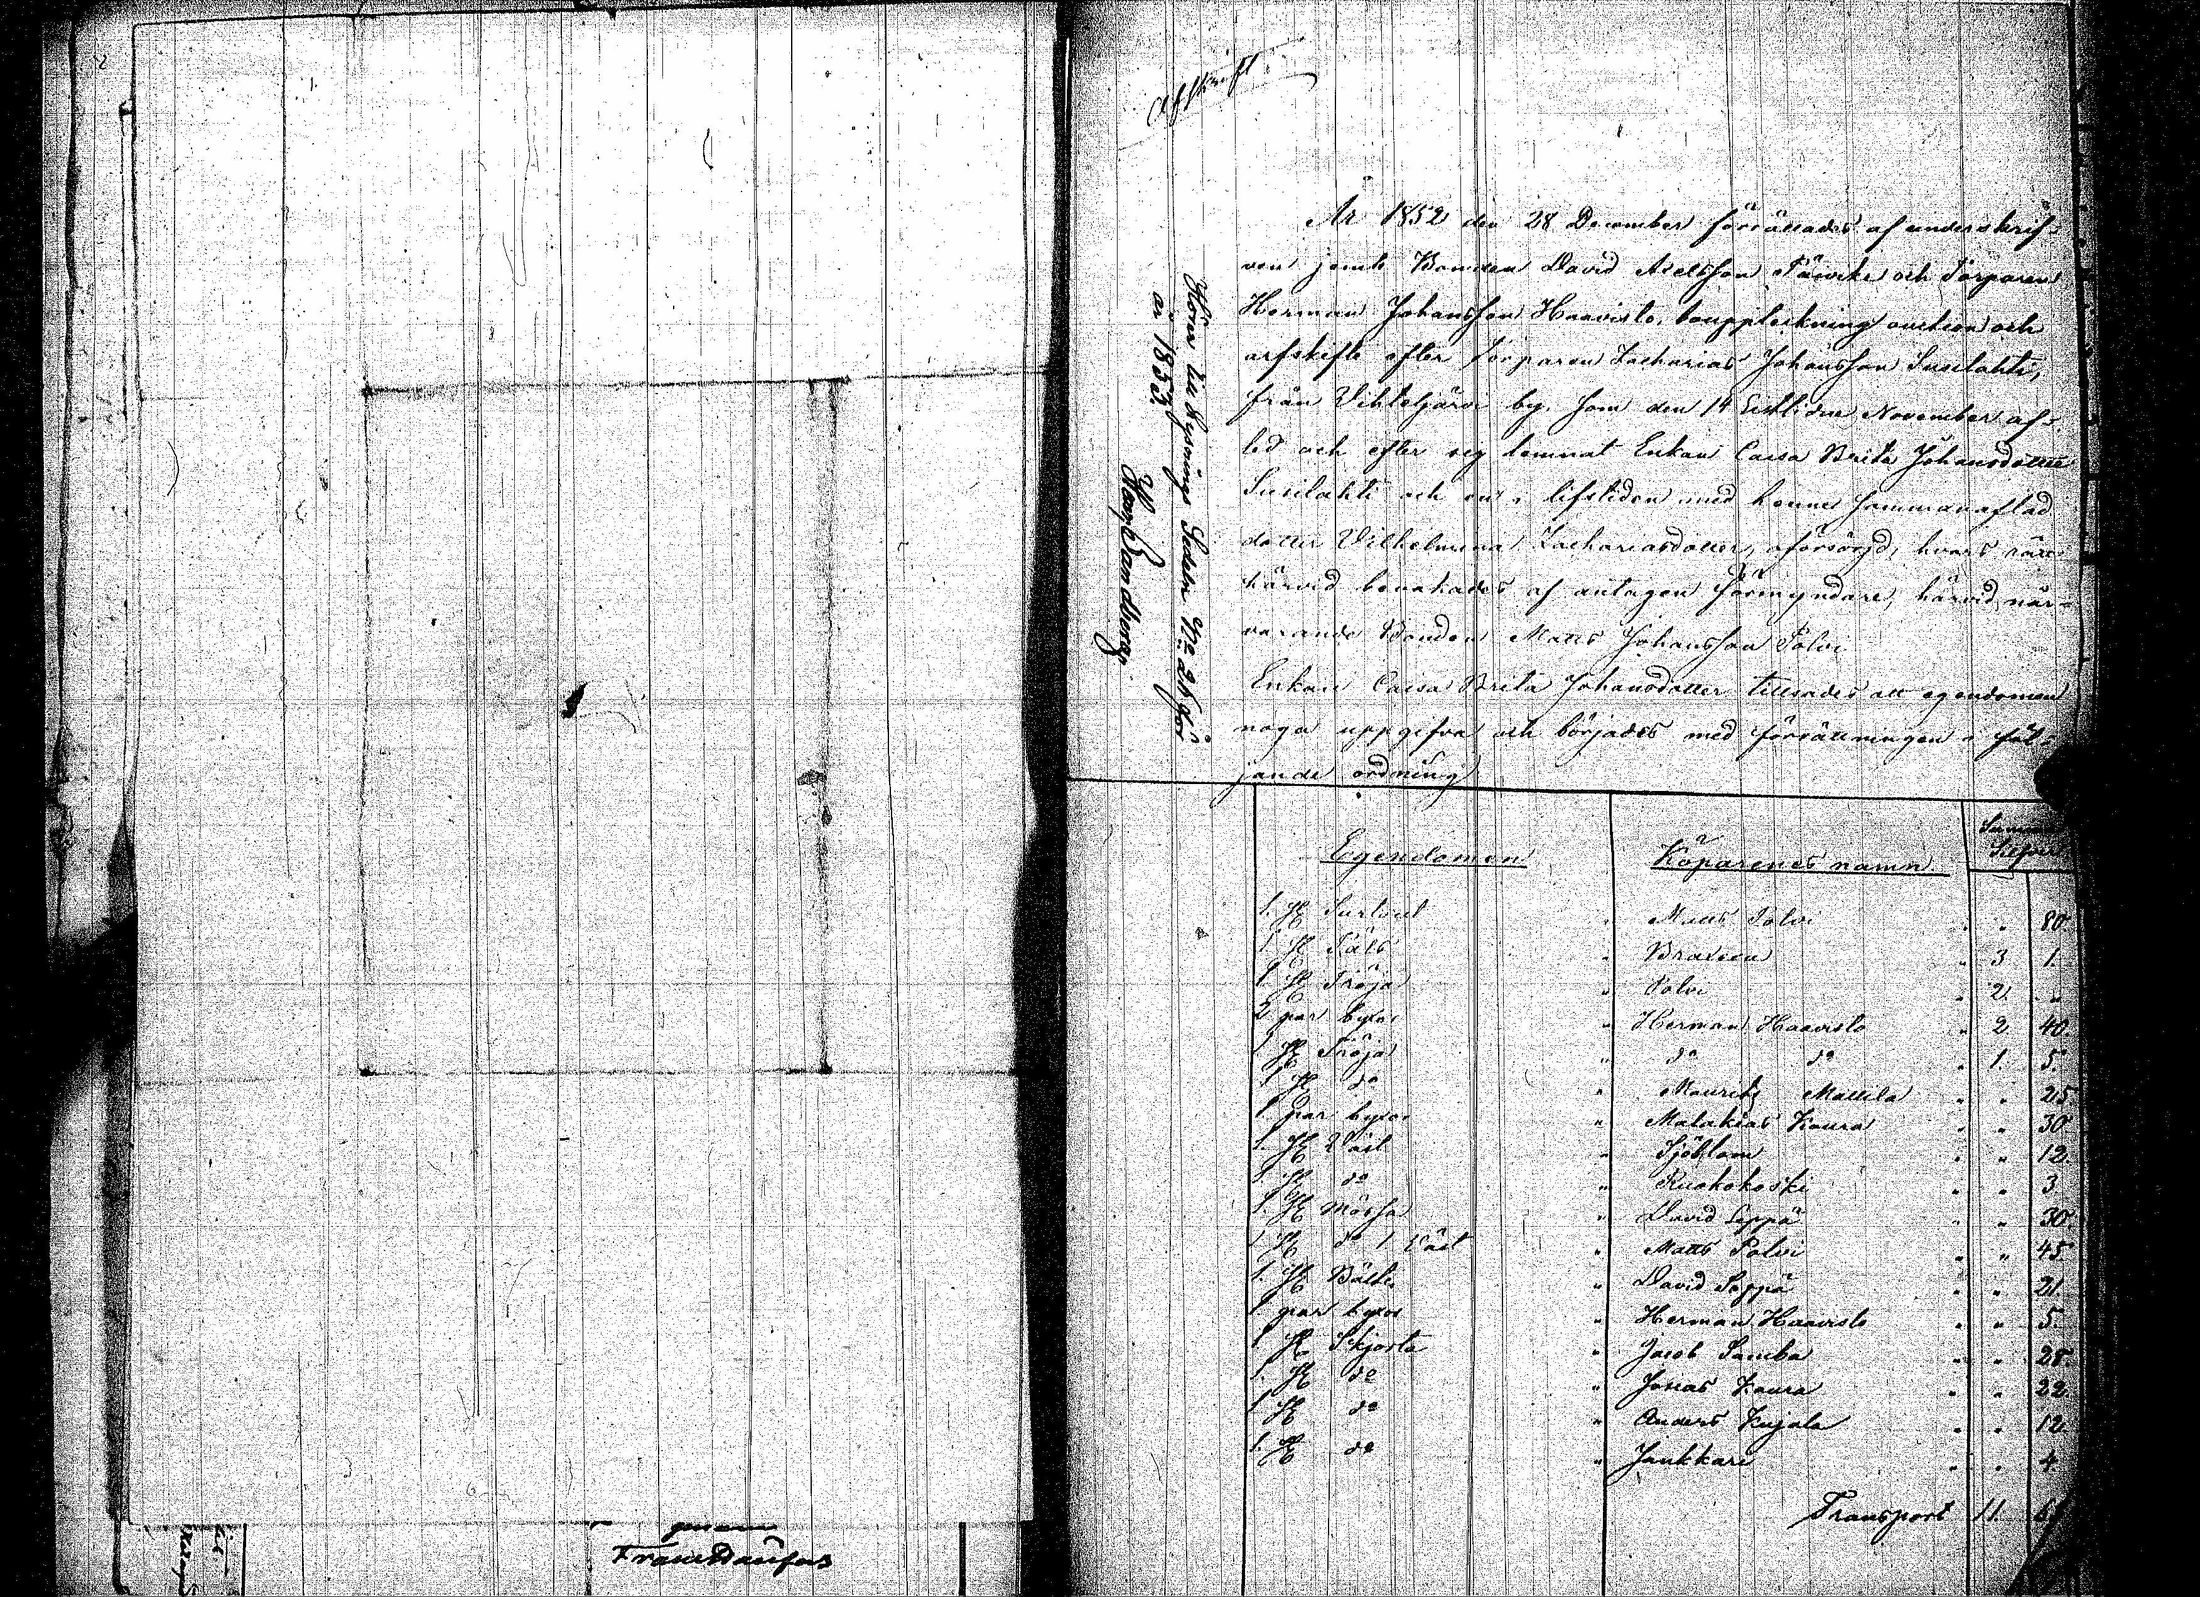 Afskrift.
År 1852 den 28 December förrättades af underskrif-
ven jemte Bonden David Axelsson och Torparen
Herman Johansson Haavisto, bouppteckning auction och
arfskifte efter Torparen Zacharias Johansson Susilahti,
från Vihteljärvi by, som den 14 November af-
led och efter sig lemnat Enkan Caisa Brita Johansdotter
Susilahti och en i lifstiden med henne sammanaflad
dotter Vilhelmina Zachariasdotter, oförsörjd, hvars rätt
härvid bevakades af antagen Förmyndare, härvid när-
varande Bonden Matts Johansson Polvi
Enkan Caisa Brita Johansdotter tillsades att egendomen
noga uppgifva och börjades med förrättningen i föl-
jande ordning
Hörer till Lysnings Sedeln No 25 för
år 1853
Egendomen Köparenes namn Summa Silfver
1. St Surtout " Matts Polvi " " 80.
1 St Päls " " 3 1.
1 St Tröja " Polvi " 2 "
2 par byxor " Herman Haavisto " 2 40.
1 St Tröja " do do " 1. 5.
1 St do " Maurits Mattila " " 25
1 par byxor " Malakias Kaura " " 30
1. St Väst " Sjöblom " " 12.
1. St do " Ruohokoski " " 3
1. St Mössa " David Seppä " " 30
1 St do 1 Väst " Matts Polvi " " 45
1. St Bälte " David Seppä " " 21.
1 par byxor " Herman Haavisto " " 5.
1 St Skjorta " Jacob Samba " " 28.
1. St do " Josias Kaura " " 22.
1 St do " Anders Kujala " " 12
1. St do " Jankkari " " 4
Transport 11.
genom